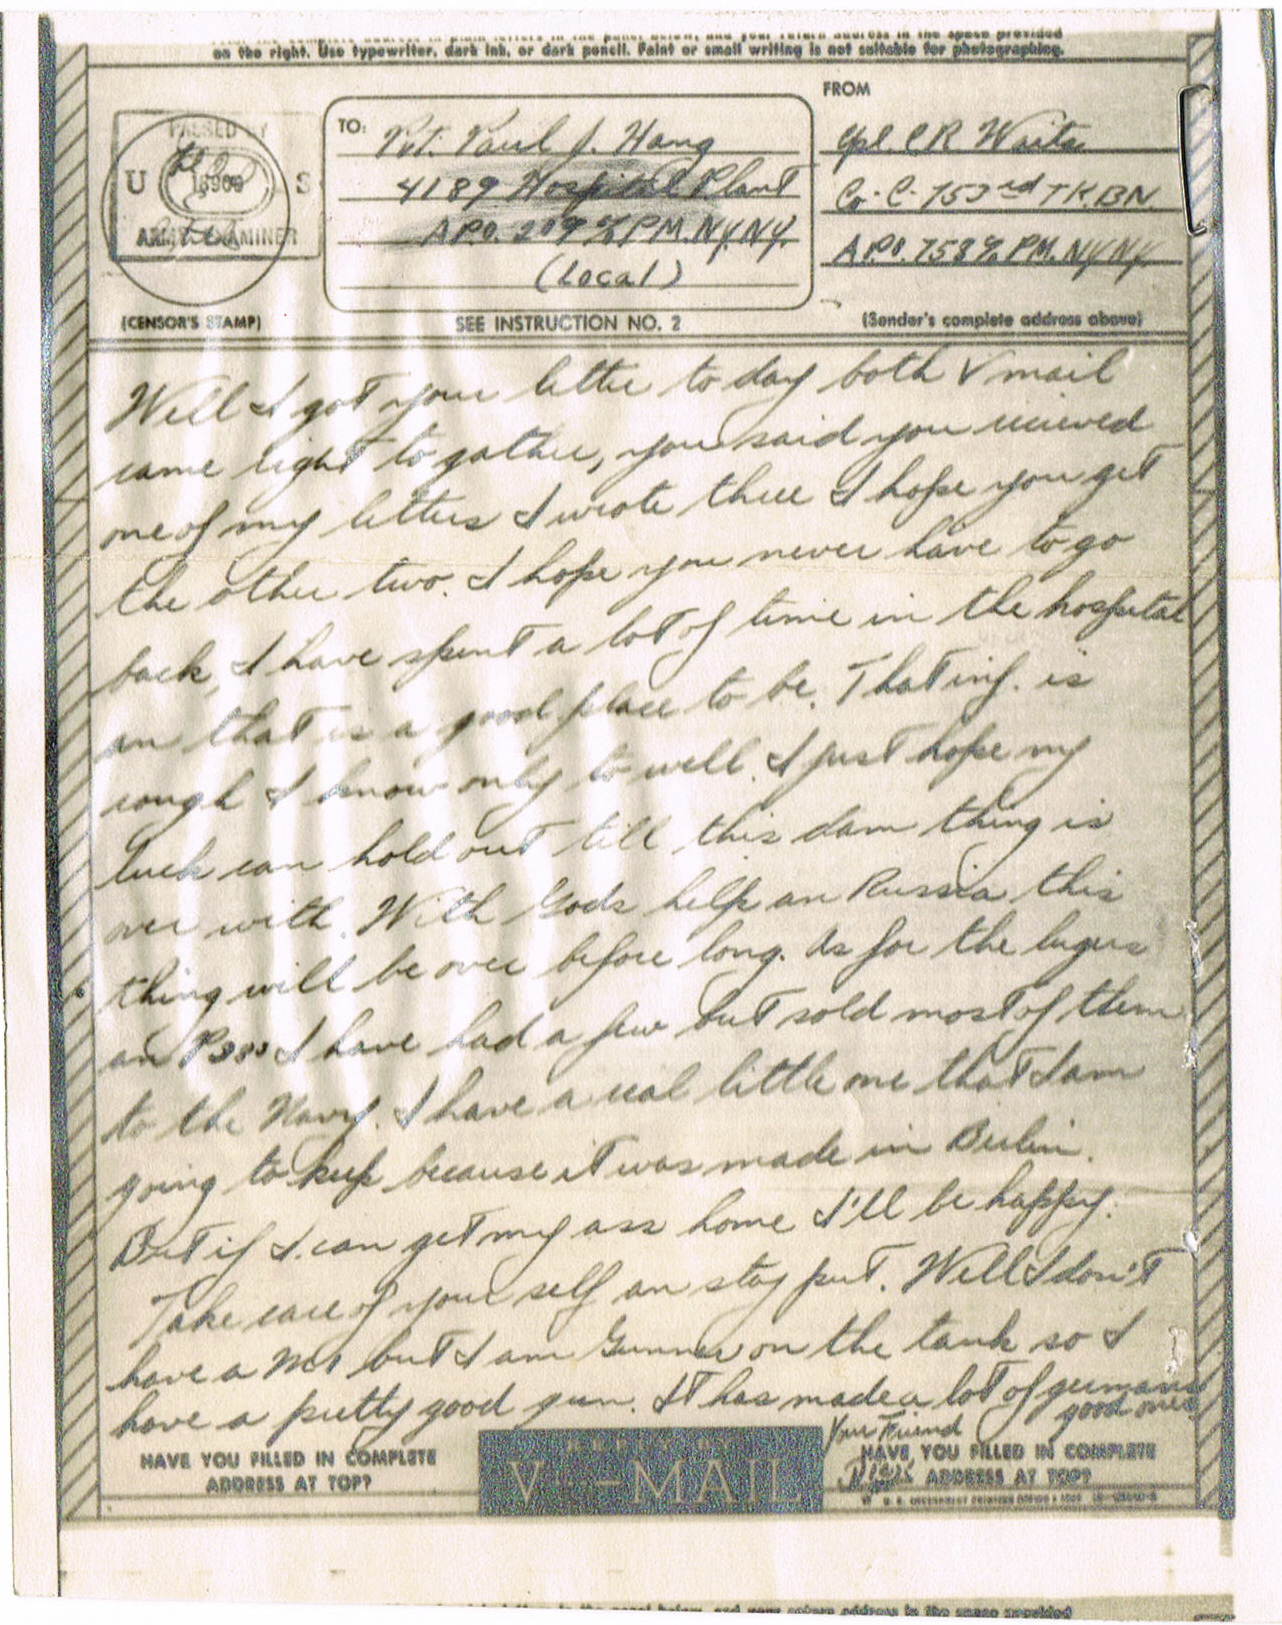 on the right. Use typewriter, dark ink, or dark pencil. Faint or small writing is not suitable for photographing.
FROM
TO:
Pvt. Paul J. Hang
4189 Hospital Plant
A.P.O. 209 % PM. N.Y. N.Y.
(Local)
Cpl. C R Waits
Co. C. 753rd TK. BN.
A.P.O. 758 % PM. N.Y. N.Y.
PASSED BY
U S
ARMY EXAMINER
(CENSOR'S STAMP)
SEE INSTRUCTION NO. 2
(Sender's complete address above)
Well I got your letter to day both V mail
came right to gather, you said you recieved
one of my letters I wrote three I hope you get
the other two. I hope you never have to go
back, I have spent a lot of time in the hospital
an that is a good place to be. That inf. is
rough I know only to well. I just hope my
luck can hold out till this dam thing is
over with. With Gods help an Russia this
thing will be over before long. As for the lugers
an P38s I have had a few but sold most of them
to the Navy. I have a real little one that I am
going to keep because it was made in Berlin.
But if I can get my ass home I'll be happy.
Take care of your self an stay put. Well I don't
have a M1 but I am Gunner on the tank so I
have a pretty good gun. It has made a lot of germans
good ones
Your Friend
HAVE YOU FILLED IN COMPLETE
ADDRESS AT TOP?
V--MAIL
HAVE YOU FILLED IN COMPLETE
ADDRESS AT TOP?